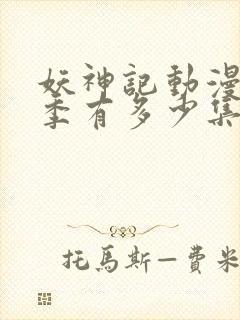 妖神記動漫
季有多少集
托馬斯—費米